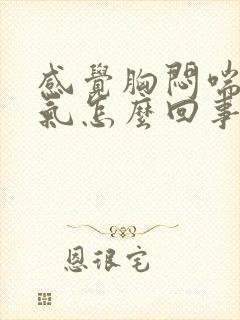 感覺胸悶喘
氣怎麼回事
恩很宅